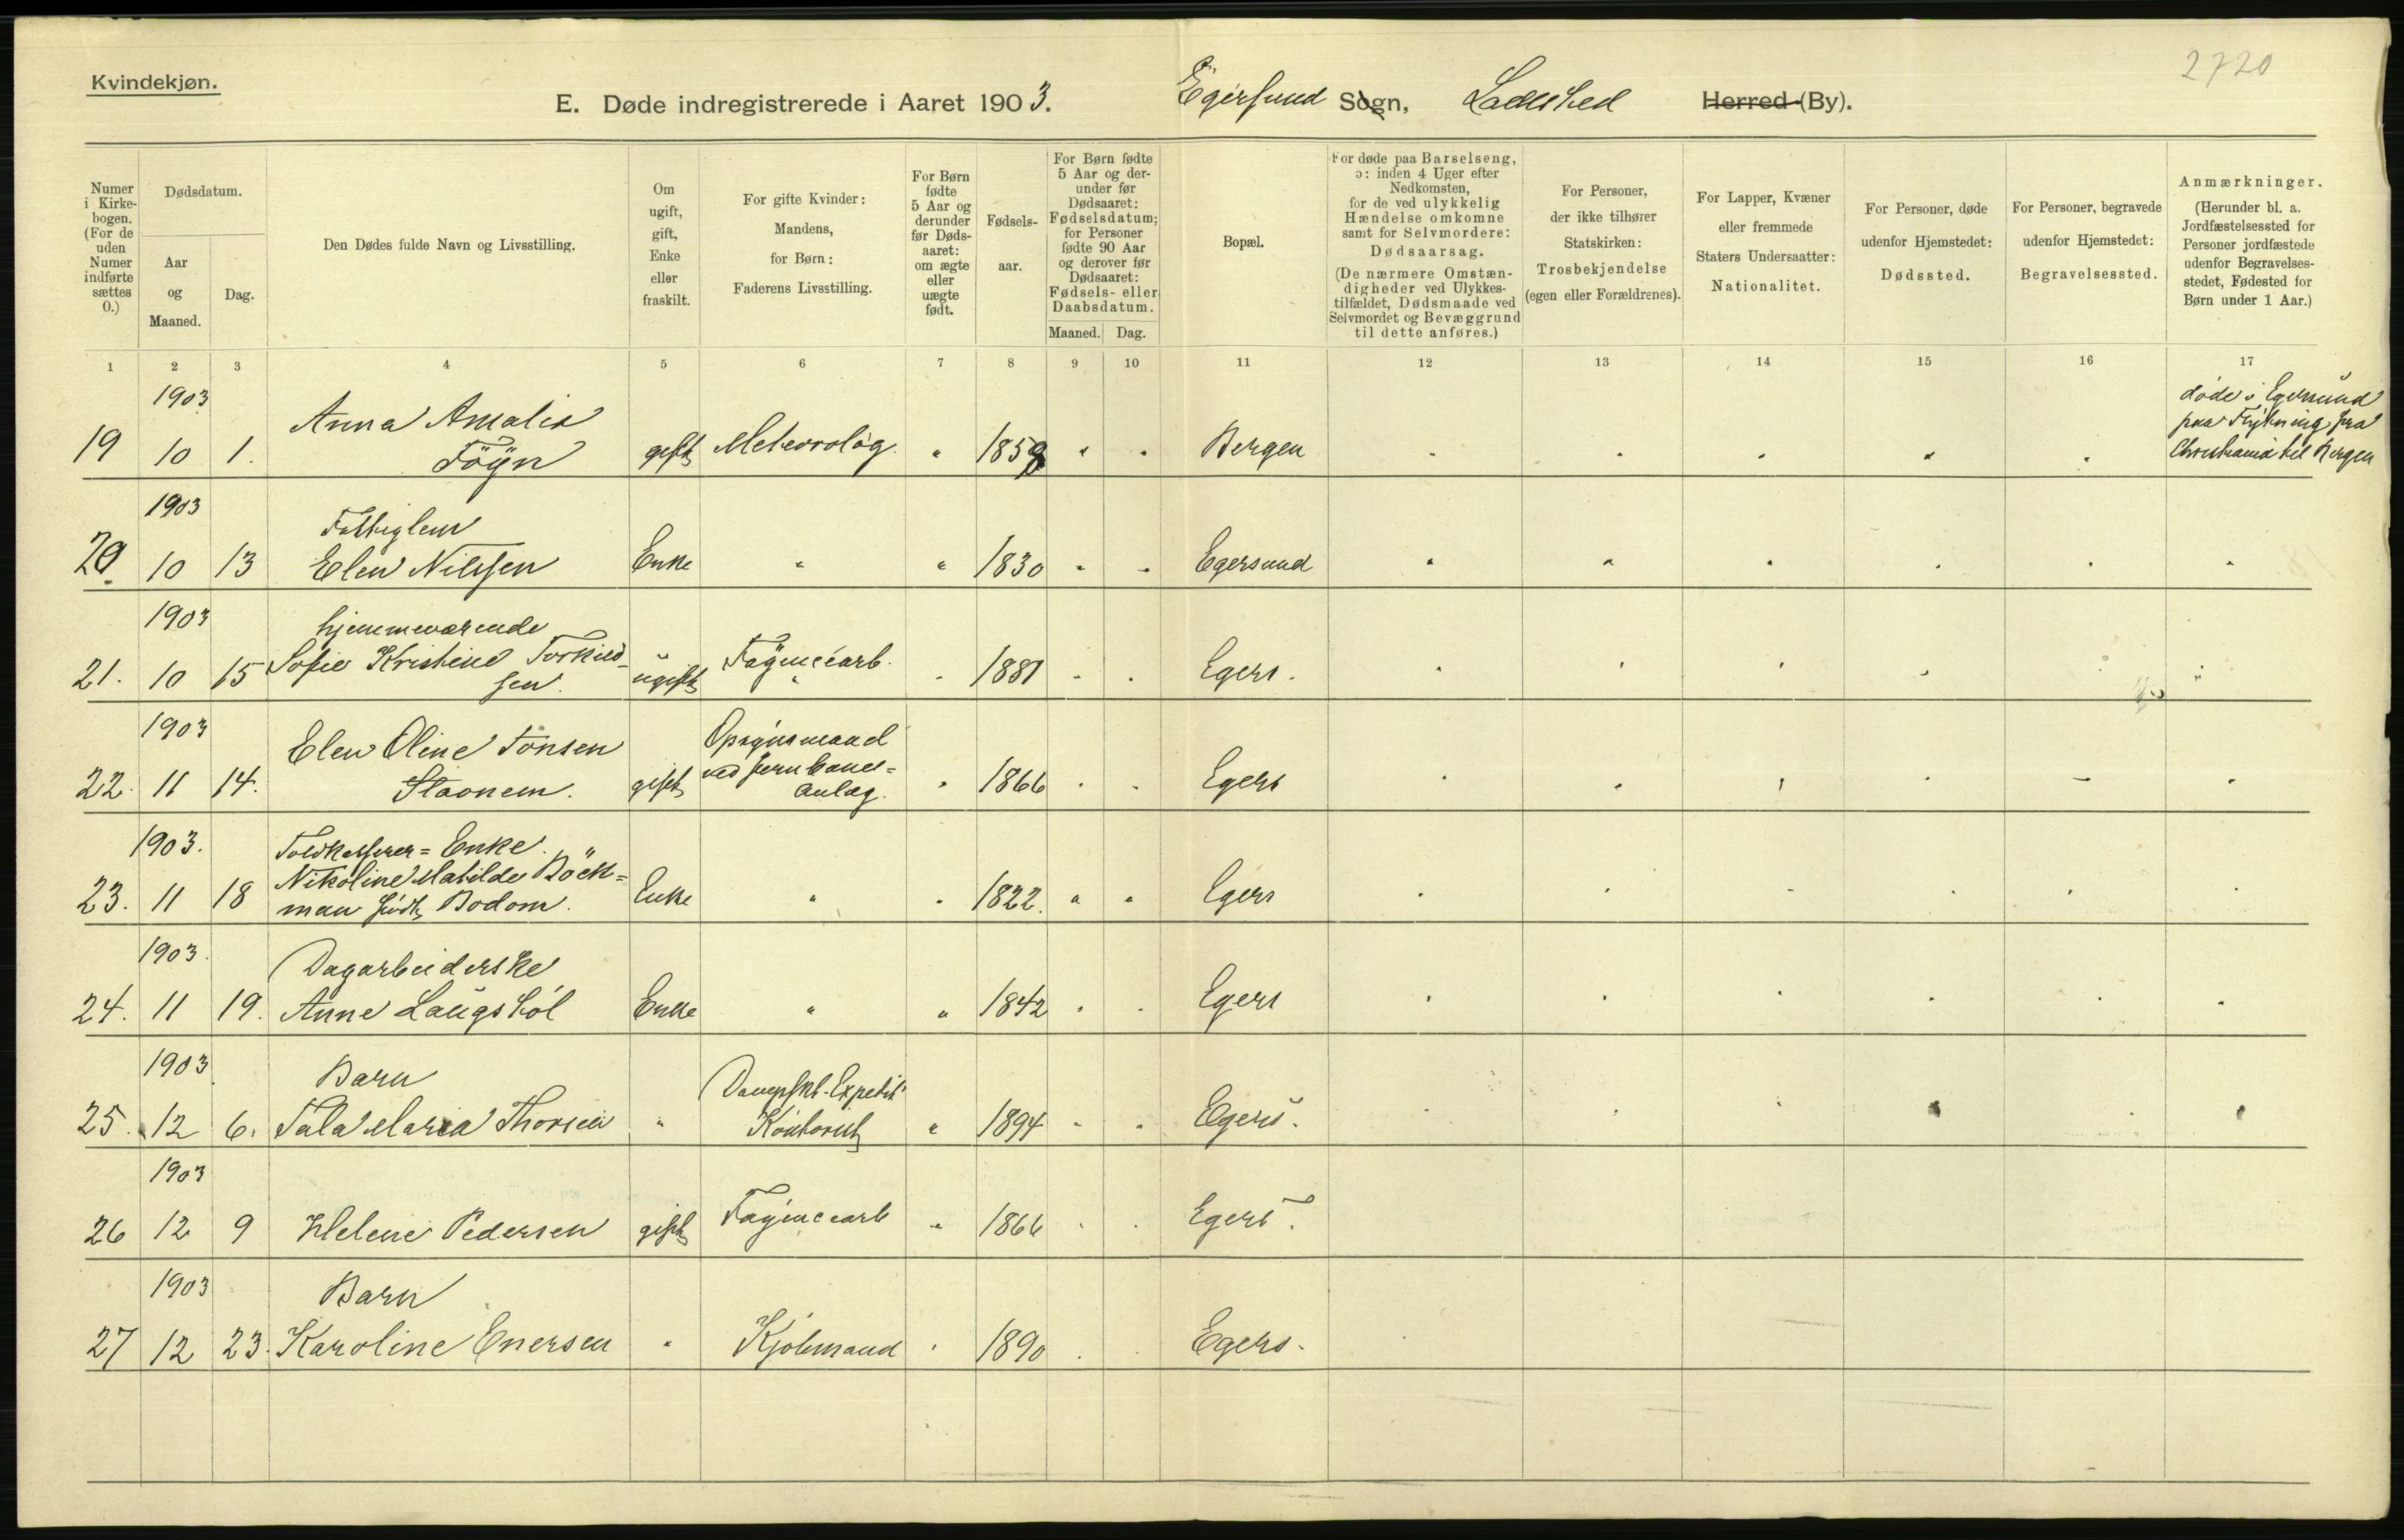 2720
Kvindekjøn.
E. Døde indregistrerede i Aaret 1903. Egersund Sogn, Ladested Herred (By).
Numer i Kirkebogen. (For de uden Numer indførte sættes 0.)
Dødsdatum.
Aar og Maaned.
Dag.
Den Dødes fulde Navn og Livsstilling.
Om ugift, gift, Enke eller fraskilt.
For gifte Kvinder: Mandens, for Børn: Faderens Livsstilling.
For Børn fødte 5 Aar og derunder før Dødsaaret: om ægte eller uægte født.
Fødselsaar.
For Børn fødte 5 Aar og derunder før Dødsaaret: Fødselsdatum; for Personer fødte 90 Aar og derover før Dødsaaret: Fødsels- eller Daabsdatum.
Maaned. Dag.
Bopæl.
For døde paa Barselseng, ɔ: inden 4 Uger efter Nedkomsten, for de ved ulykkelig Hændelse omkomne samt for Selvmordere: Dødsaarsag. (De nærmere Omstændigheder ved Ulykkestilfældet, Dødsmaade ved Selvmordet og Bevæggrund til dette anføres.)
For Personer, der ikke tilhører Statskirken: Trosbekjendelse (egen eller Forældrenes).
For Lapper, Kvæner eller fremmede Staters Undersaatter: Nationalitet.
For Personer, døde udenfor Hjemstedet: Dødssted.
For Personer, begravede udenfor Hjemstedet: Begravelsessted.
Anmærkninger. (Herunder bl. a. Jordfæstelsessted for Personer jordfæstede udenfor Begravelsesstedet, Fødested for Børn under 1 Aar.)
1 2 3 4 5 6 7 8 9 10 11 12 13 14 15 16 17
1903
19 10 1. Anna Amalia Föyn gift Meteorolog. " 1859 " " Bergen
døde i Egersund
paa Flytning fra
Christiania til Bergen
1903 Fattiglem
20. 10 13 Elen Nilssen Enke " " 1830 " " Egersund
1903 hjemmeværende
21. 10 15 Sofie Kristine Torkildsen. ugift Fayencearb. 1881 Egers.
1903
22. 11 14. Elen Oline Tönsen Staonem. gift Opsynsmand ved Jernbaneanlæg. 1866 Egers
1903. Toldkasserer=Enke.
23. 11 18 Nikoline Matilde Böckman født Bodom. Enke " 1822. " " Egers
1903. Dagarbeiderske
24. 11 19. Anne Laugshol Enke " " 1842 Egers
1903 Barn
25. 12 6. Tala Maria Thorsen " Dampsk.-Expedit. Kontorist " 1894 Egers.
1903
26 12 9 Helene Pedersen gift Fayencearb " 1866 Egers.
1903 Barn
27 12 23. Karoline Enersen " 1890 Egers.